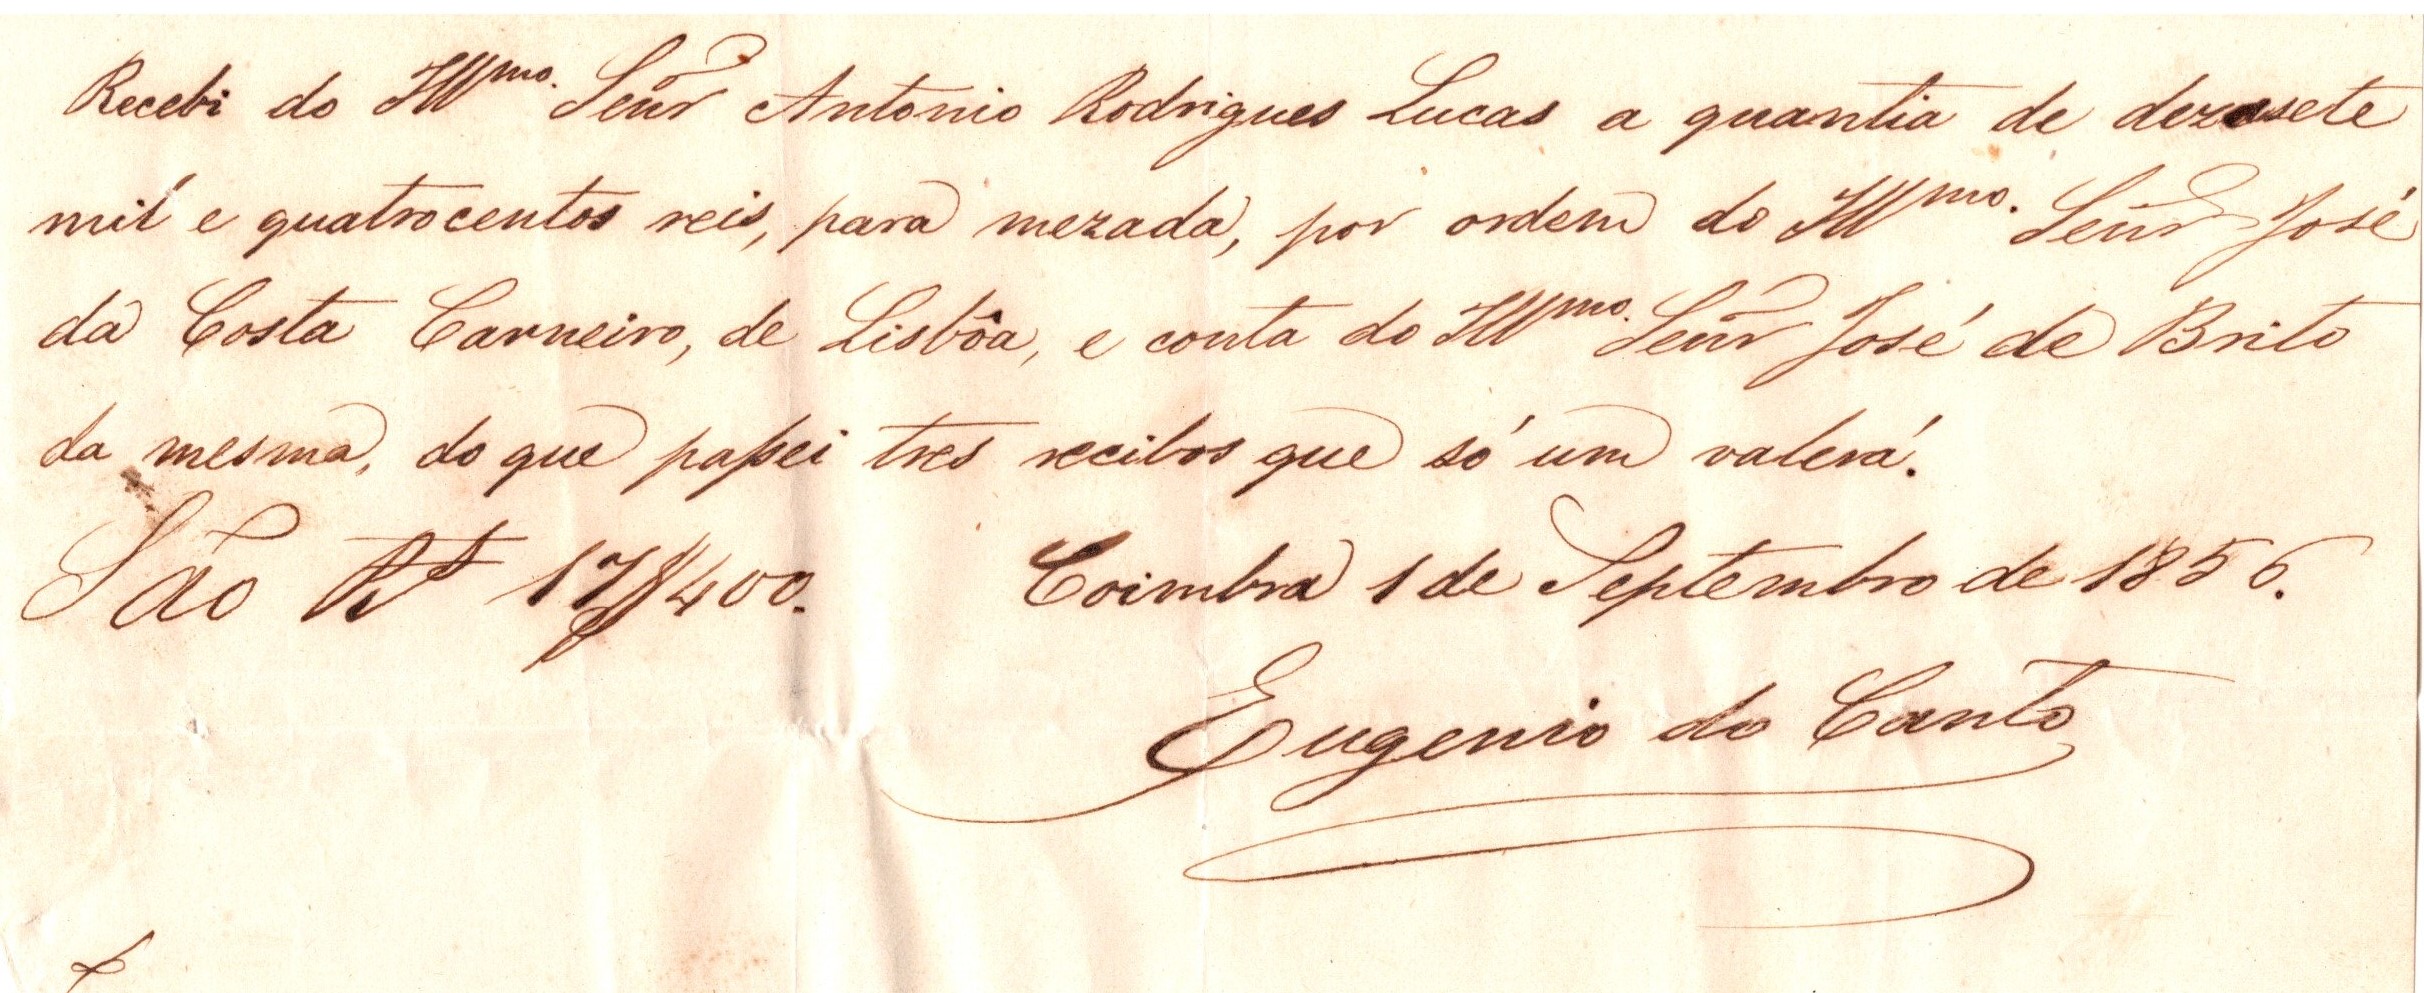 Recebi do Illmo. Senr Antonio Rodrigues Lucas a quantia de dezasete
mil e quatrocentos reis, para mezada, por ordem do Illmo. Senr José
da Costa Carneiro, de Lisbôa, e conta do Illmo. Senr José de Brito
da mesma, do que paſsei tres recibos que só um valerá.
São Rs 17$400. Coimbra 1 de Septembro de 1856.
Eugenio do Canto